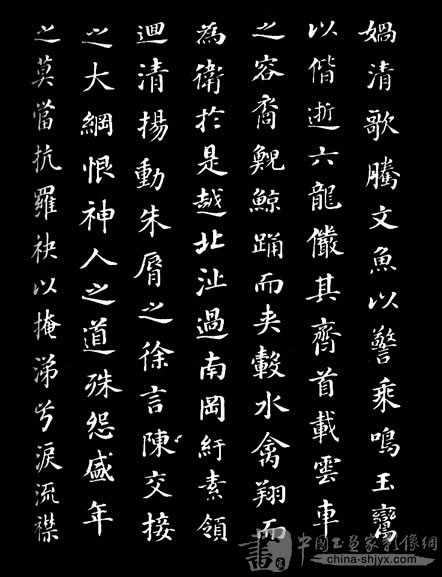 媧清歌騰文魚以警乘鳴玉鸞
以偕逝六龍儼其齊首載雲車
之容裔鯢鯨踊而夾轂水禽翔而
為衛於是越北沚過南岡紆素領
迴清揚動朱脣之徐言陳交接
之大綱恨神人之道殊怨盛年
之莫當抗羅袂以掩涕兮淚流襟
中國書畫家影像網
www.china-shjyx.com